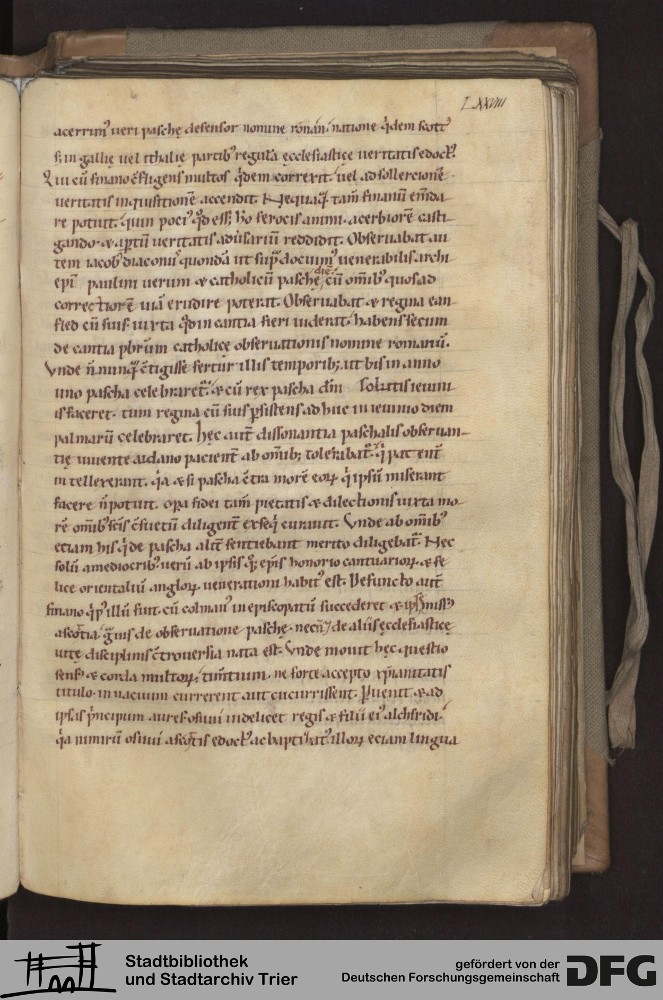 LXXVIII
acerrim᷒ ueri paschę defensor nomine roman᷒ natione q̇dem scott᷒
s; in gallię uel ithalię partib᷒ regula ęcclesiasticę ueritatis edoct᷒.
Qui cū finano c̄fligens multos q̇dem correxit. uel ad sollercionē
ueritatis inquisitionē accendit. Nequaq̄ tam̄ finanū em̄da
re potuit. quin poci᷒ qd̄ ess& ho ferocis animi. acerbiorē casti
gando. & aptū ueritatis aduersariū reddidit. Obseruabat au
tem iacob᷒ diaconu᷒ quondā ut sup̄ docuim᷒ uenerabilis archi
ep̄i paulini uerum & catholicū paschę cū om̄ib᷒ quos ad
correctiorē uiā erudire poterat. Obseruabat & regina ean
fled cū suis. iuxta qd̄ in cantia fieri uiderat. habens secum
de cantia pb̄rum catholicę obseruationis nomine romanū.
Vnde n̄ nunq̄ c̄tigisse fertur illis temporib; ut bis in anno
uno pascha celebraret᷒. & cū rex pascha dn̄i solutis ieiuni
is faceret. tum regina cū suis p̄sistens ad huc in ieiunio diem
palmarū celebraret. hęc aut̄ dissonantia paschalis obseruan
tię uiuente aidano pacient̄ ab om̄ib; tolerabat᷒. q̇ pat ent̄
intellexerant. q̇a & si pascha c̄tra morē eoꝝ q̇ ipsū miserant
facere n̄ potuit. opa fidei tam̄ pietatis & dilectionis iuxta mo
rē om̄ib᷒ sc̄is c̄suetū diligent̄ exseq̇ curauit. Vnde ab om̄ib᷒
eciam his q̇ de pascha alit̄ sentiebant merito diligebat᷒. Nec
solū a mediocrib᷒ uerū ab ipsis q᷒ꝫ ep̄is honorio cantuarioꝝ & fe
lice orientaliū angloꝝ uenerationi habit᷒ est. Defuncto aut̄
finano q̇ p᷒ illū fuit. cū colman᷒ in episcopatū succederet & ipse miss᷒
a scotia. grauis de obseruatione paschę. necn̄ & de aliis ęcclesiasticę
uitę disciplinis c̄trouersia nata est. Vnde mouit hęc questio
sens᷒ & corda multoꝝ. tim̄tium. ne forte accepto xp̄ianitatis
titulo. in uacuum currerent aut cucurrissent. Puenit & ad
ipsas ṗncipum aures. osuui uidelicet regis & filii ei᷒ alchfridi.
q̇a nimirū osuui a scottis edoct᷒ ac baptizat᷒. illoꝝ eciam lingua
Stadtbibliothek
und Stadtarchiv Trier
gefördert von der
Deutschen Forschungsgemeinschaft
DFG